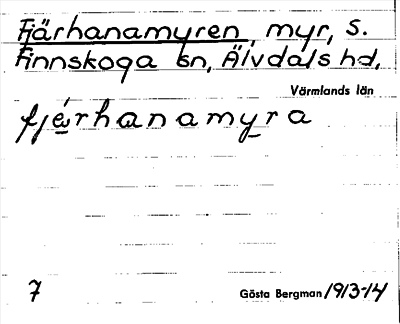 Fjärhanamyren, myr, s.
Finnskoga sn, Älvdals hd,
Värmlands län
fjérhanamyra
7
Gösta Bergman 1913-14